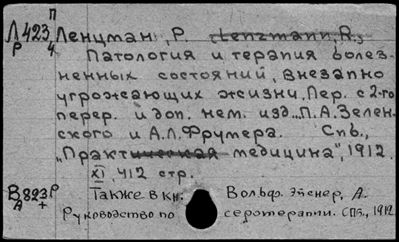 П
Л423 Ленцман, Р. Lenzmann, R.,
Р 4 Патология и терапия болез-
ненных состояний, внезапно
угрожающих жизни. Пер. с 2-го
перер. и доп. нем. изд. П.А.Зелен-
ского и А.Л.Фрумера. Спб.,
„Практическая медицина", 1912.
XI, 412 стр.
В893 Р Также в кн: Вольф-Эйснер, А.
А + Руководство по серотерапии. СПб., 1912